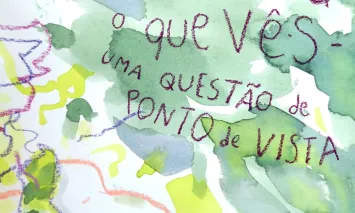 o que vês-
uma questão de
ponto de vista